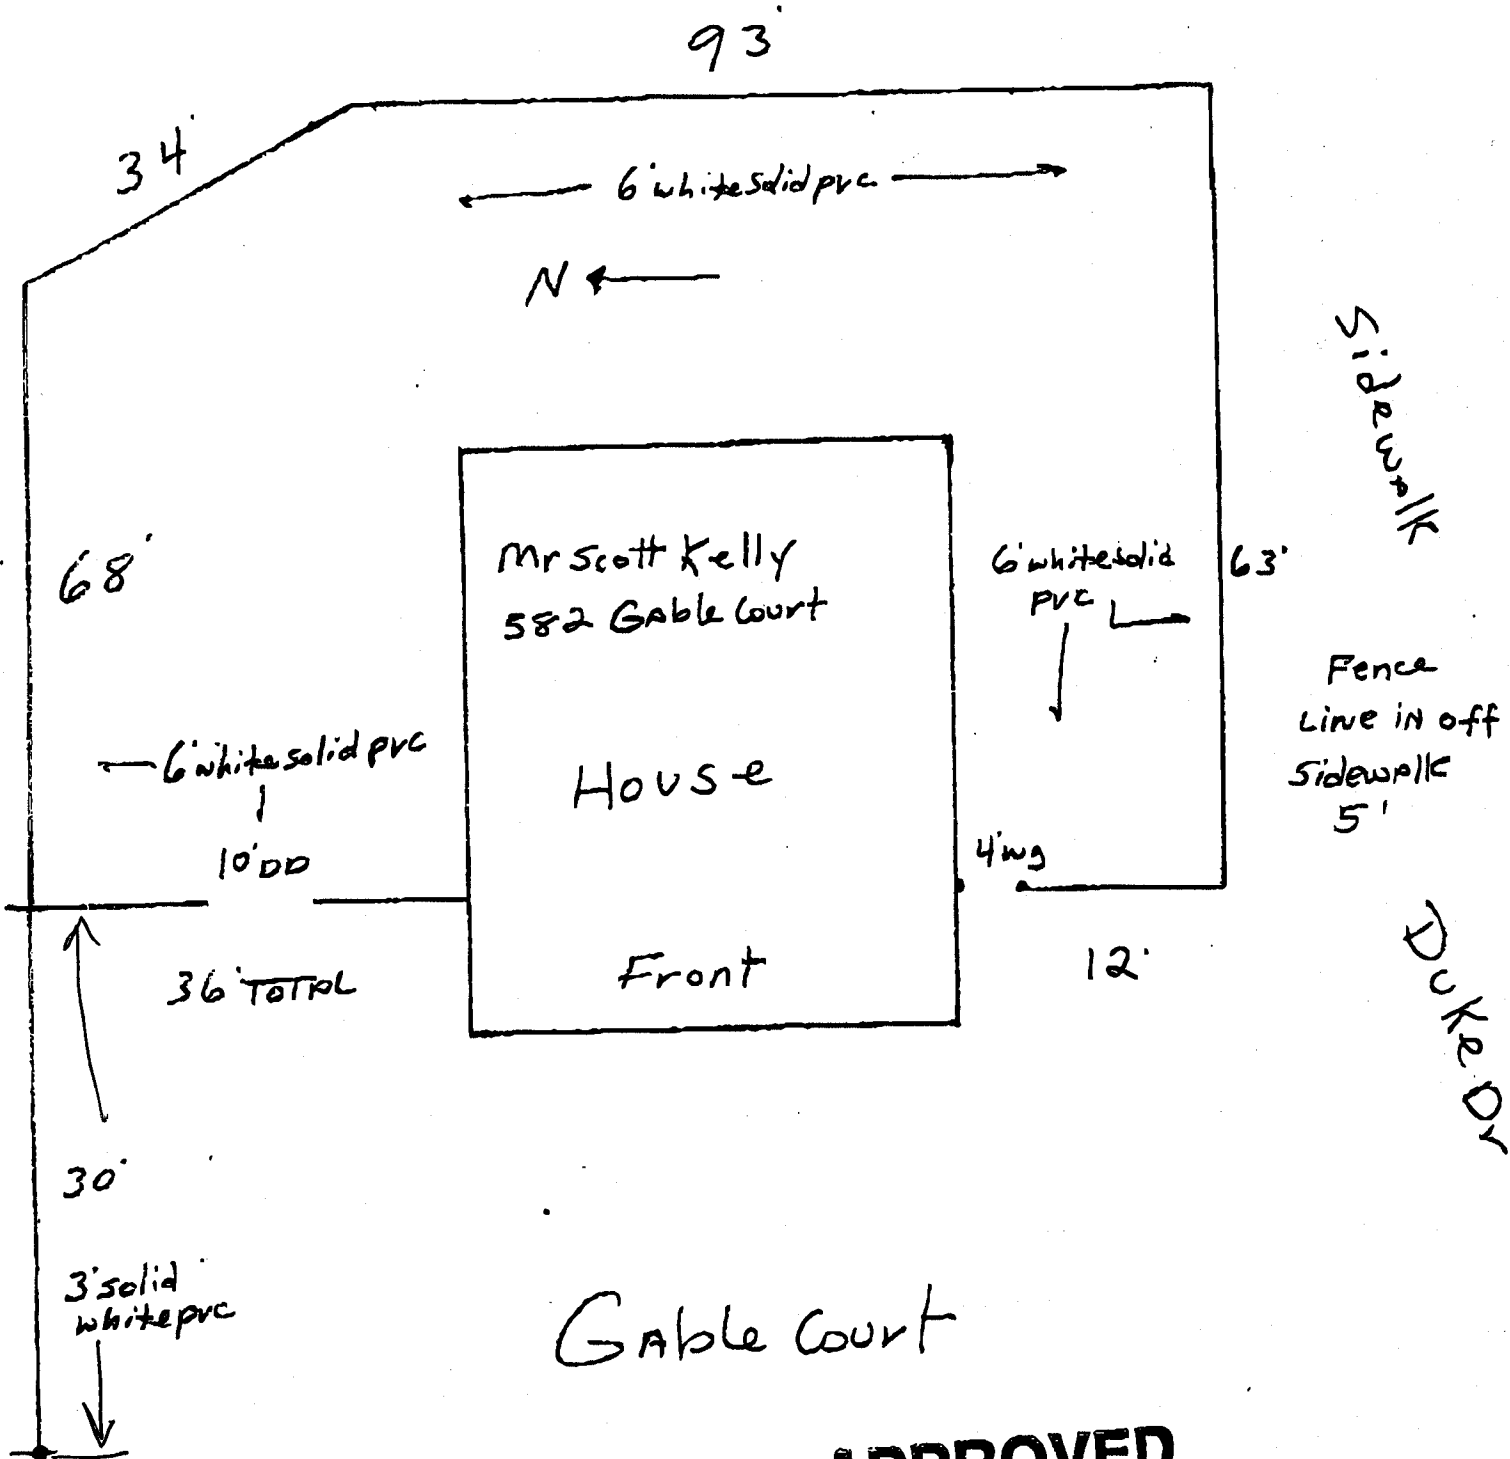 93'
34'
6' white solid pvc
N
Sidewalk
68'
Mr Scott Kelly
582 Gable Court
6' white solid
pvc
63'
Fence
Line in off
Sidewalk
5'
6' white solid pvc
10' DD
House
4' wg
36' TOTAL
Front
12'
Duke Dr
30'
3' solid
white pvc
Gable Court
APPROVED